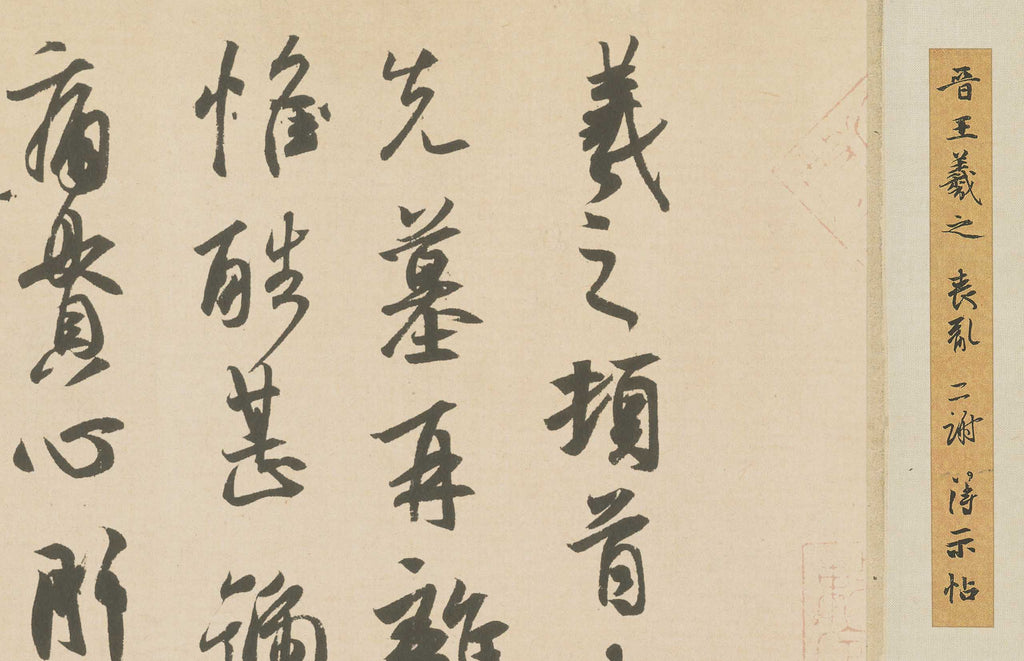 晉王羲之 喪亂 二謝 得示帖
羲之頓首
先墓再離
惟酷甚號
痛貫心肝